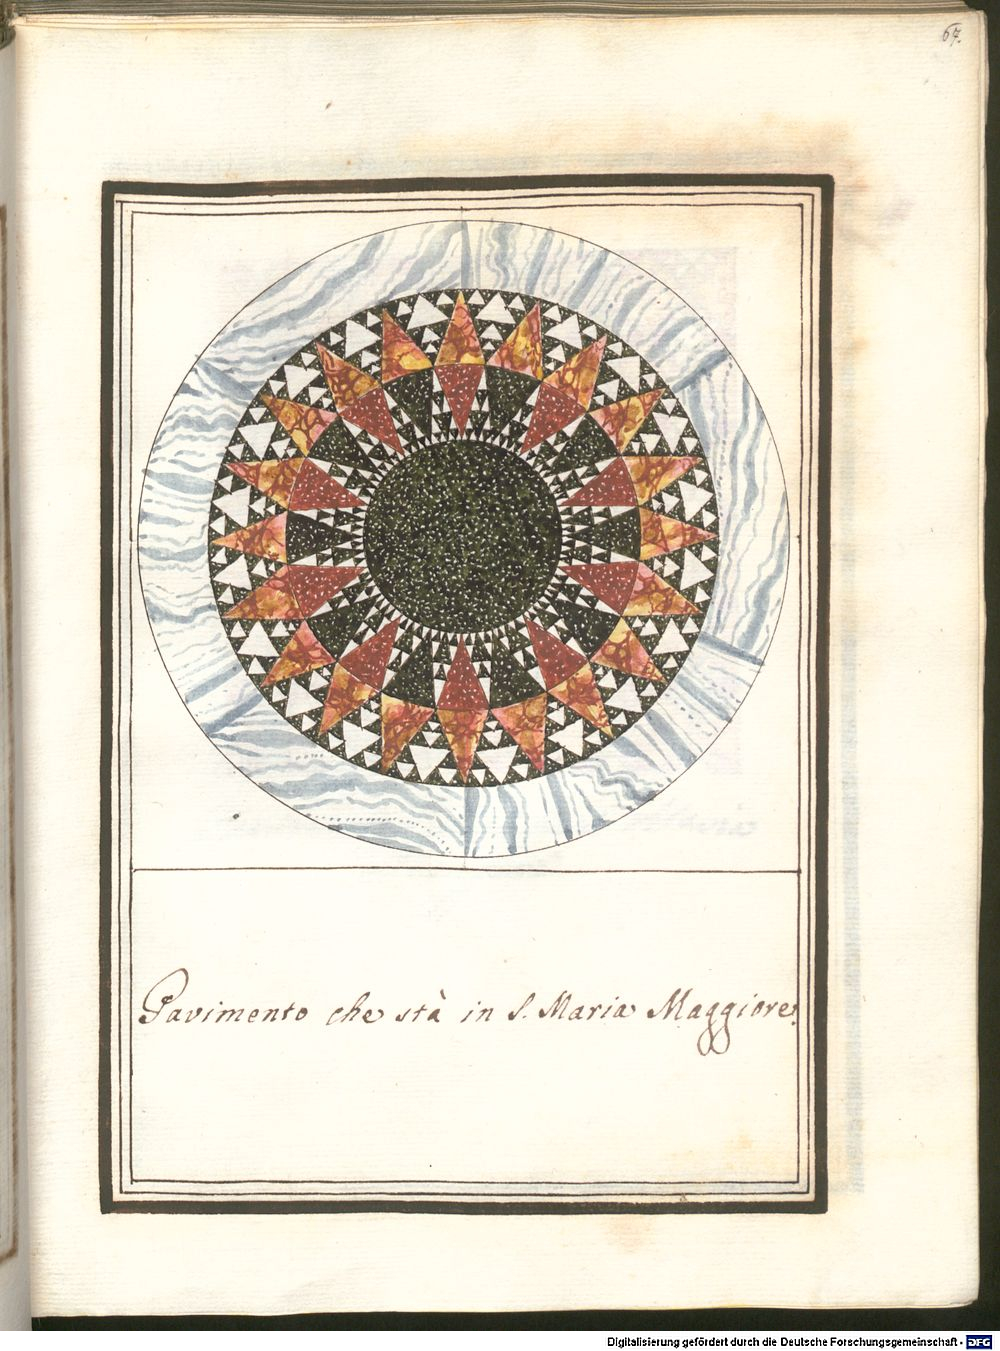 67.
Pavimento che stà in S. Maria Maggiore.
Digitalisierung gefördert durch die Deutsche Forschungsgemeinschaft - DFG